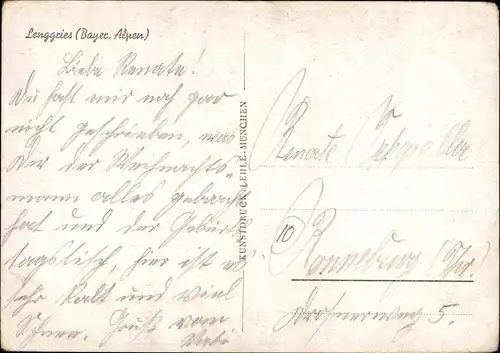 Lenggries (Bayer. Alpen)
Liebe Renate!
Du hast mir noch gar
nicht geschrieben, was
Dir der Weihnachts-
mann alles gebracht
hat und der Geburts-
tagstisch, hier ist es
sehr kalt und viel
Schnee. Gruß vom
KUNSTDRUCK LEHLE, MÜNCHEN
Renate
10
Ronneburg (Thr.)
5.